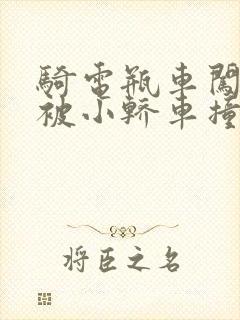 騎電瓶車闖
被小轎車撞
将臣之名